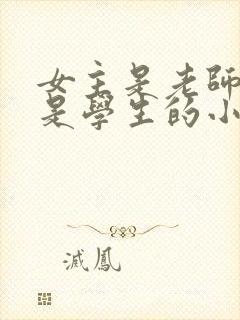 女主是老師
是學生的小
滅鳳